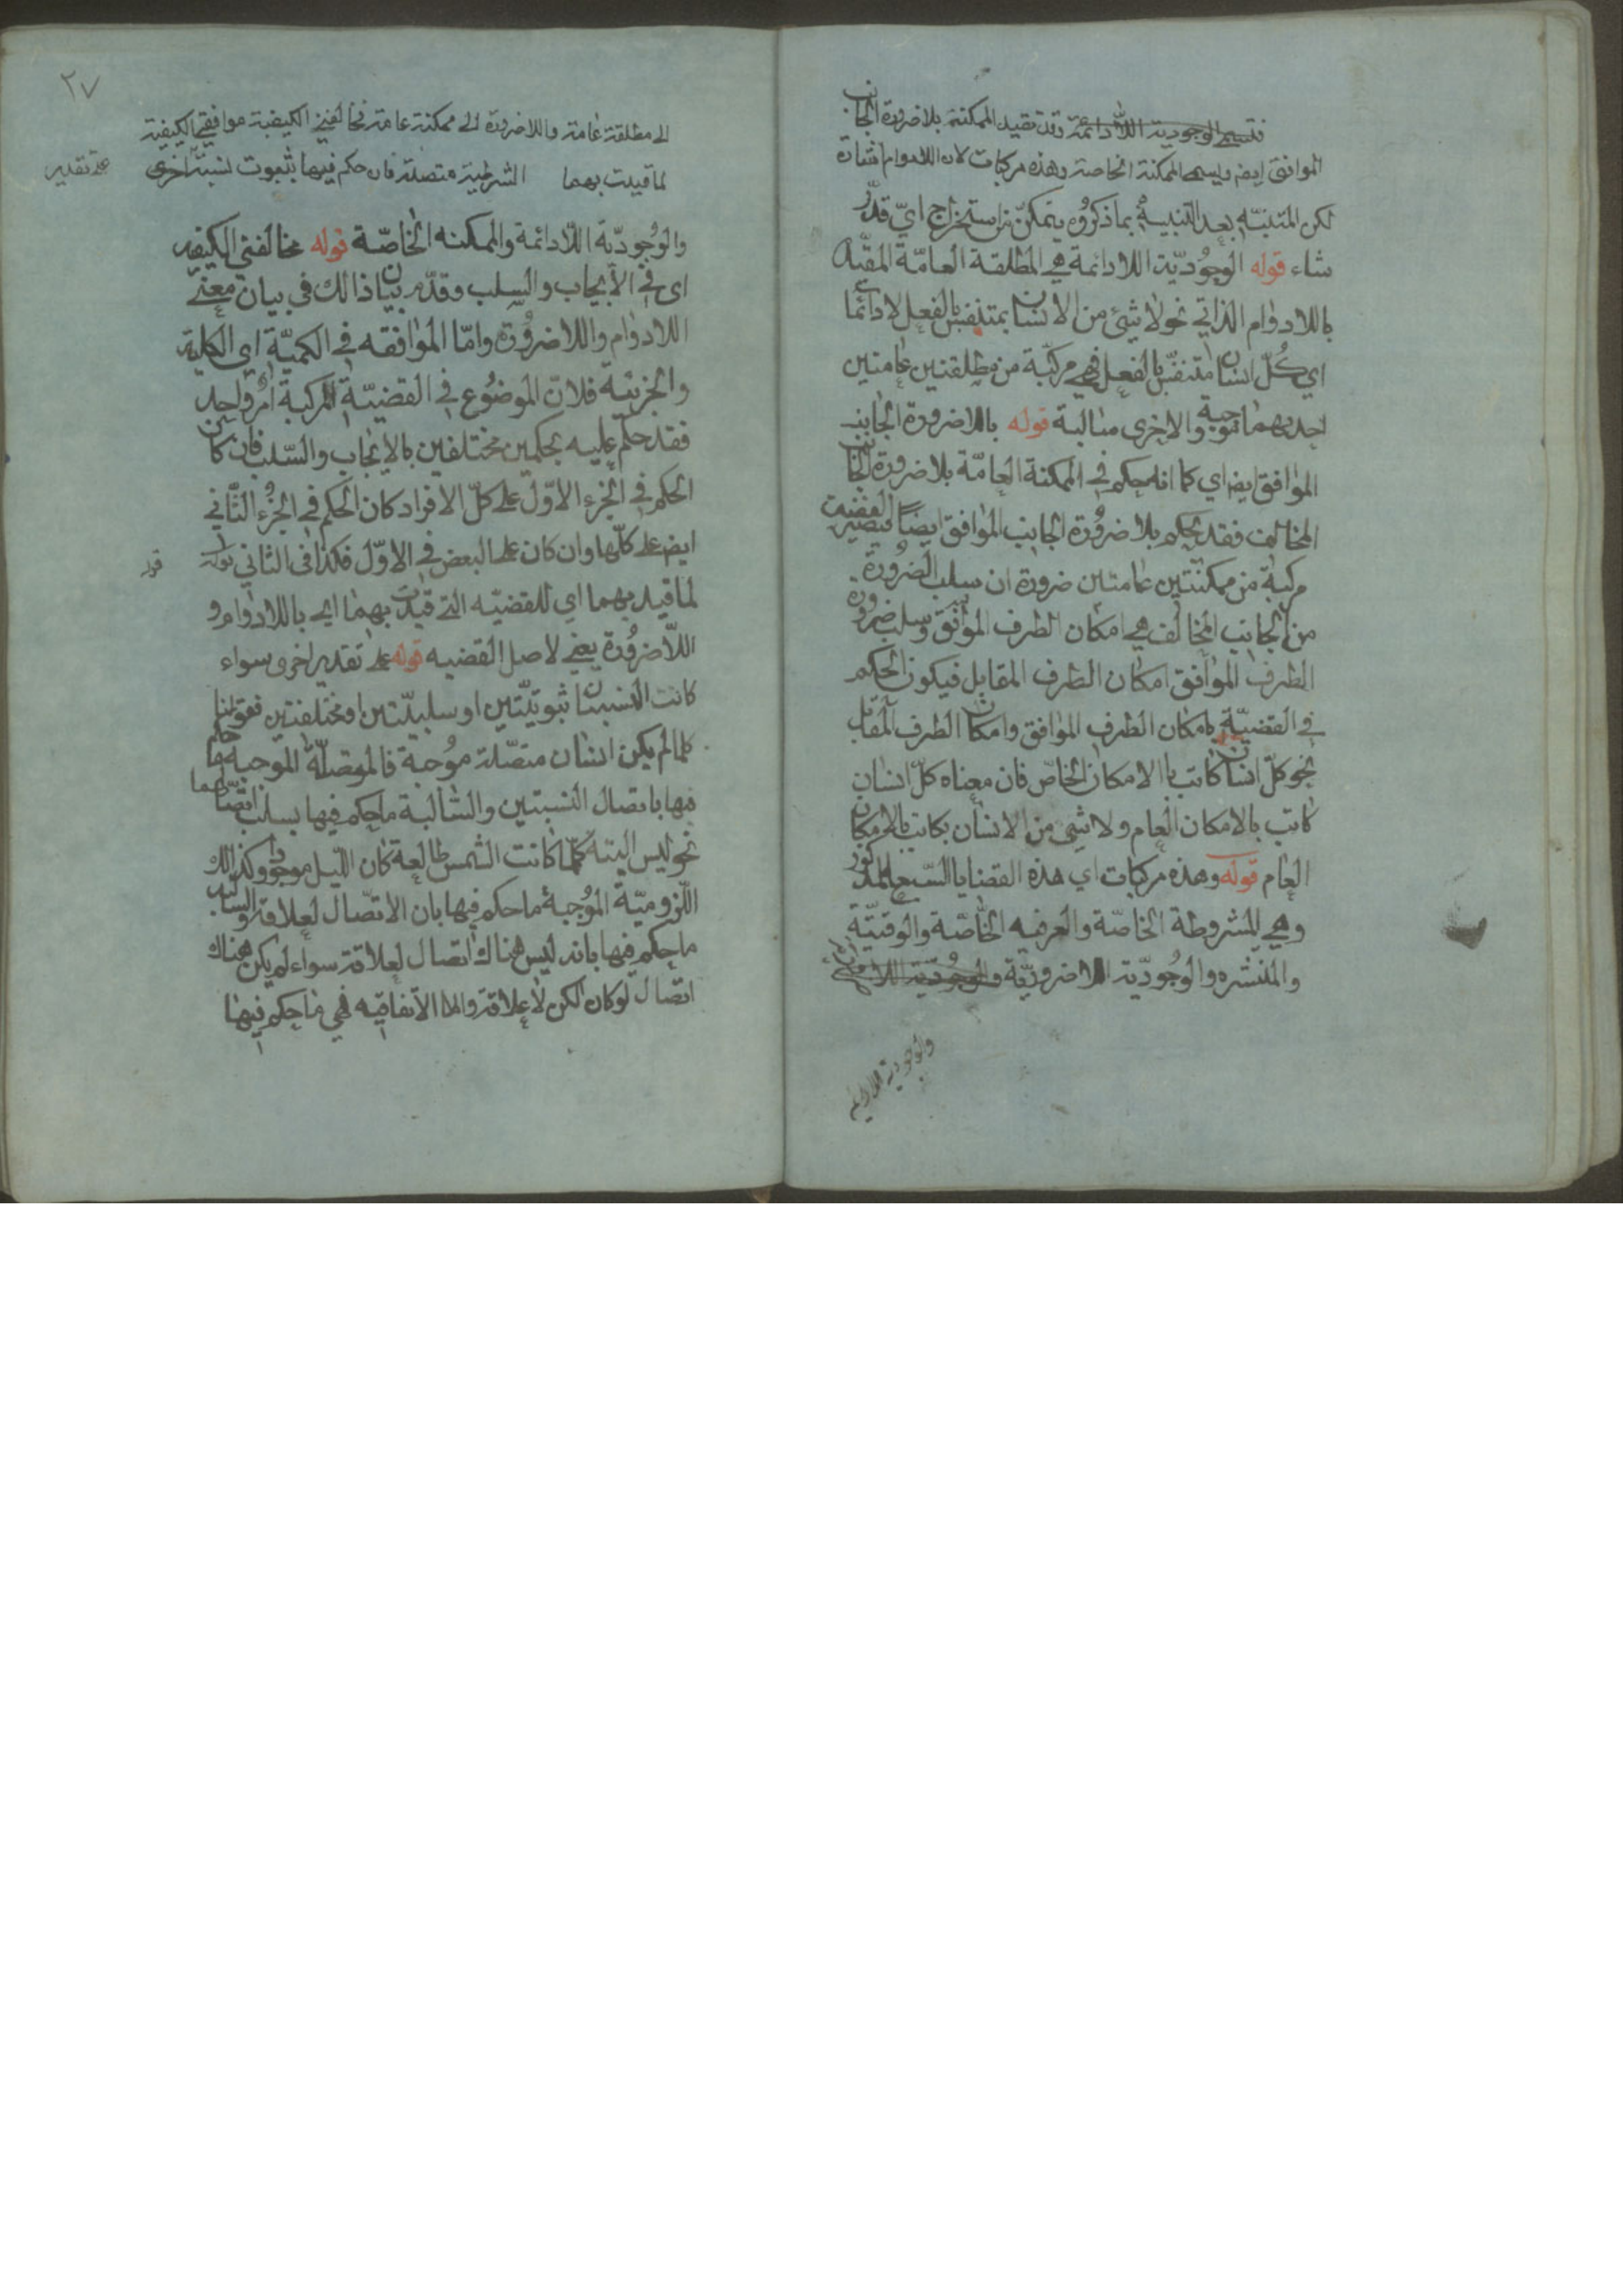 فتسمى الوجودية اللادائمة وقد تقيد الممكنة بلاضرورة الجانب
الموافق ايضا ويسمى الممكنة الخاصة وهذه مركبات لان اللادوام اشارة
لكن المتنبّه بعد التنبيه بما ذكروه يتمكّن من استخراج ايّ قدّر
شاء قوله الوجُوديّة اللادائمة هي المطلقة العامّة المقيّدة
باللادوام الذاتي نحو لا شئ من الانسان بمتنفس بالفعل لا دائما
اي كُلّ انسان متنفّس بالفعل فهي مركبّة من مطلقتين عامتين
احديهما موجبة والاخرى سالبة قوله باللاضرورة الجانب
الموافق ايضا اي كما انه حكم في الممكنة العامّة بلا ضرورة الجانب
المخالف فقد يحكم بلا ضرورة الجانب الموافق ايضاً فتصير القضية
مركبة من ممكنتين عامتين ضرورة ان سلب الضرورة
من الجانب المخالف هي امكان الطرف الموافق وسلب ضرورة
الطرف الموافق امكان الطرف المقابل فيكون الحكم
في القضيّة بامكان الطرف الموافق وامكان الطرف المقابل
نحو كلّ انسان كاتب بالامكان الخاصّ فان معناه كلّ انسان
كاتب بالامكان العام ولا شئ من الانسان بكاتب بالامكان
العام قوله وهذه مركبات اي هذه القضايا السبع المذكورة
وهي المشروطة الخاصّة والعرفيه الخاصّة والوقتيّة
والمنتشره والوجُوديّة اللاضروريّة والوجُوديّة اللا
والوجودية اللادائمه
٢٧
الى مطلقة عامة واللاضرورة الى ممكنة عامة مخالفتي الكيفية موافقتي الكيفية
لما قيدت بهما الشرطية متصلة فان حكم فيها بثبوت نسبة اخرى
على تقدير
والوجُوديّة اللادائمة والممكنه الخاصّة قوله مخالفتي الكيفيه
اى في الايجاب والسلب وقد مر بيان ذالك في بيان معنى
اللادوام واللاضرورة وامّا الموافقه في الكميّة اي الكلية
والجزئية فلانّ الموضُوع في القضيّة المركبة امرٌ واحد
فقد حكم عليه بحكمين مختلفين بالايجاب والسّلب فان كان
الحكم في الجزء الاوّل على كلّ الافراد كان الحكم في الجزُء الثّاني
ايضا على كلّها وان كان على البعض في الاوّل فكذا فى الثاني قوله
قوله
لما قيد بهما اي للقضيّه التي قيدت بهما اى باللادوام و
اللاّضرُورة يعني لاصل القضيه قوله على تقدير اخرى سواء
كانت النسبتان ثبوتيّتين او سلبيّتين او مختلفتين فقولنا
كلما لم يكن انسان متصّلة موُجبة فالمتصلّة الموجبه ما حكم
فيها باتصال النسبتين والسّالبة ما حكم فيها بسلب اتصالهما
نحو ليس البته كلّما كانت الشمس طالعة كان اللّيل موجودا وكذالك
اللّزوميّة الموُجبة ما حكم فيها بان الاتصّال لعلاقة والسالبة
ما حكم فيها بانه ليس هناك اتصال لعلاقة سواء لم يكن هناك
اتصال لو كان لكن لا علاقة واما الاتفاقيّه فهي ما حكم فيها